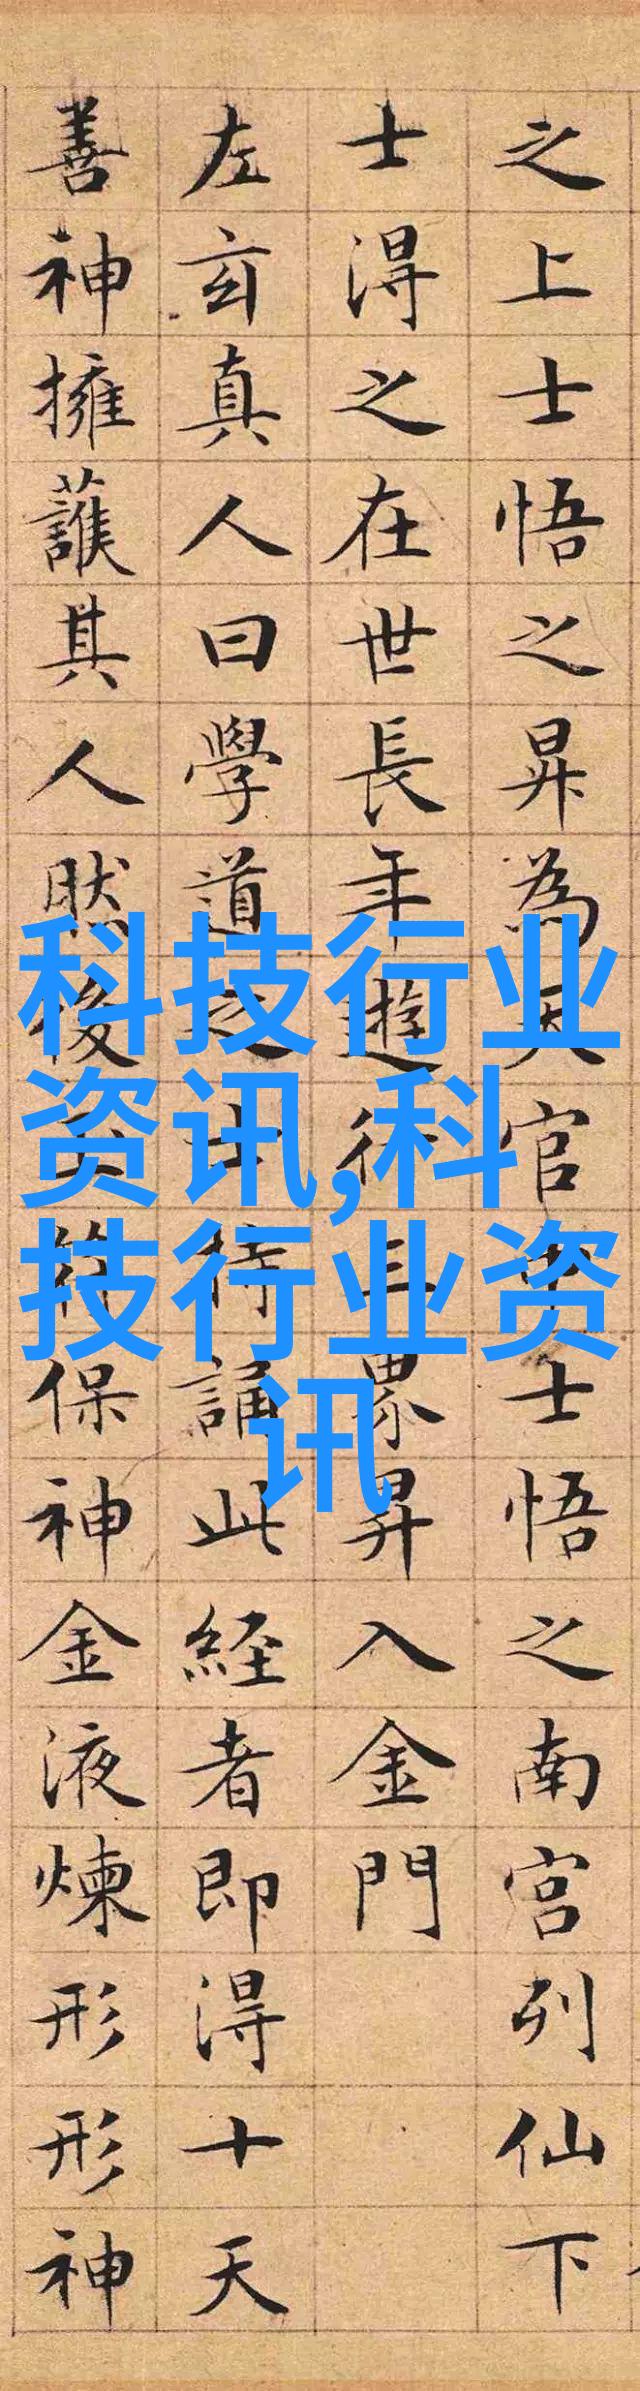 之上士悟之昇為天官中士悟之南宮列仙下
士淂之在世長年遊行三界昇入金門
左玄真人曰學道之士持誦此経者即淂十天
善神擁護其人然後玉符保神金液煉形形神
科技行业
资讯,科
技行业资
讯